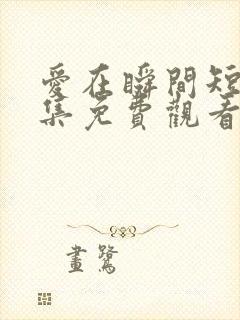 愛在瞬間短
集免費觀看
畫鷺